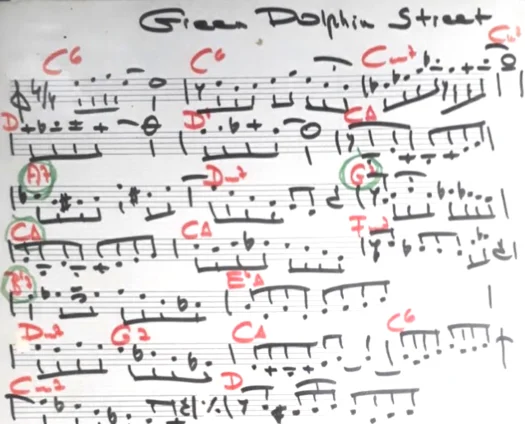 Green Dolphin Street
C6 C6 C-7 C-7
D D CΔ
A7 D-7 G7
CΔ CΔ F-7
B7 EΔ
D-7 G7 CΔ C6
C-7 D